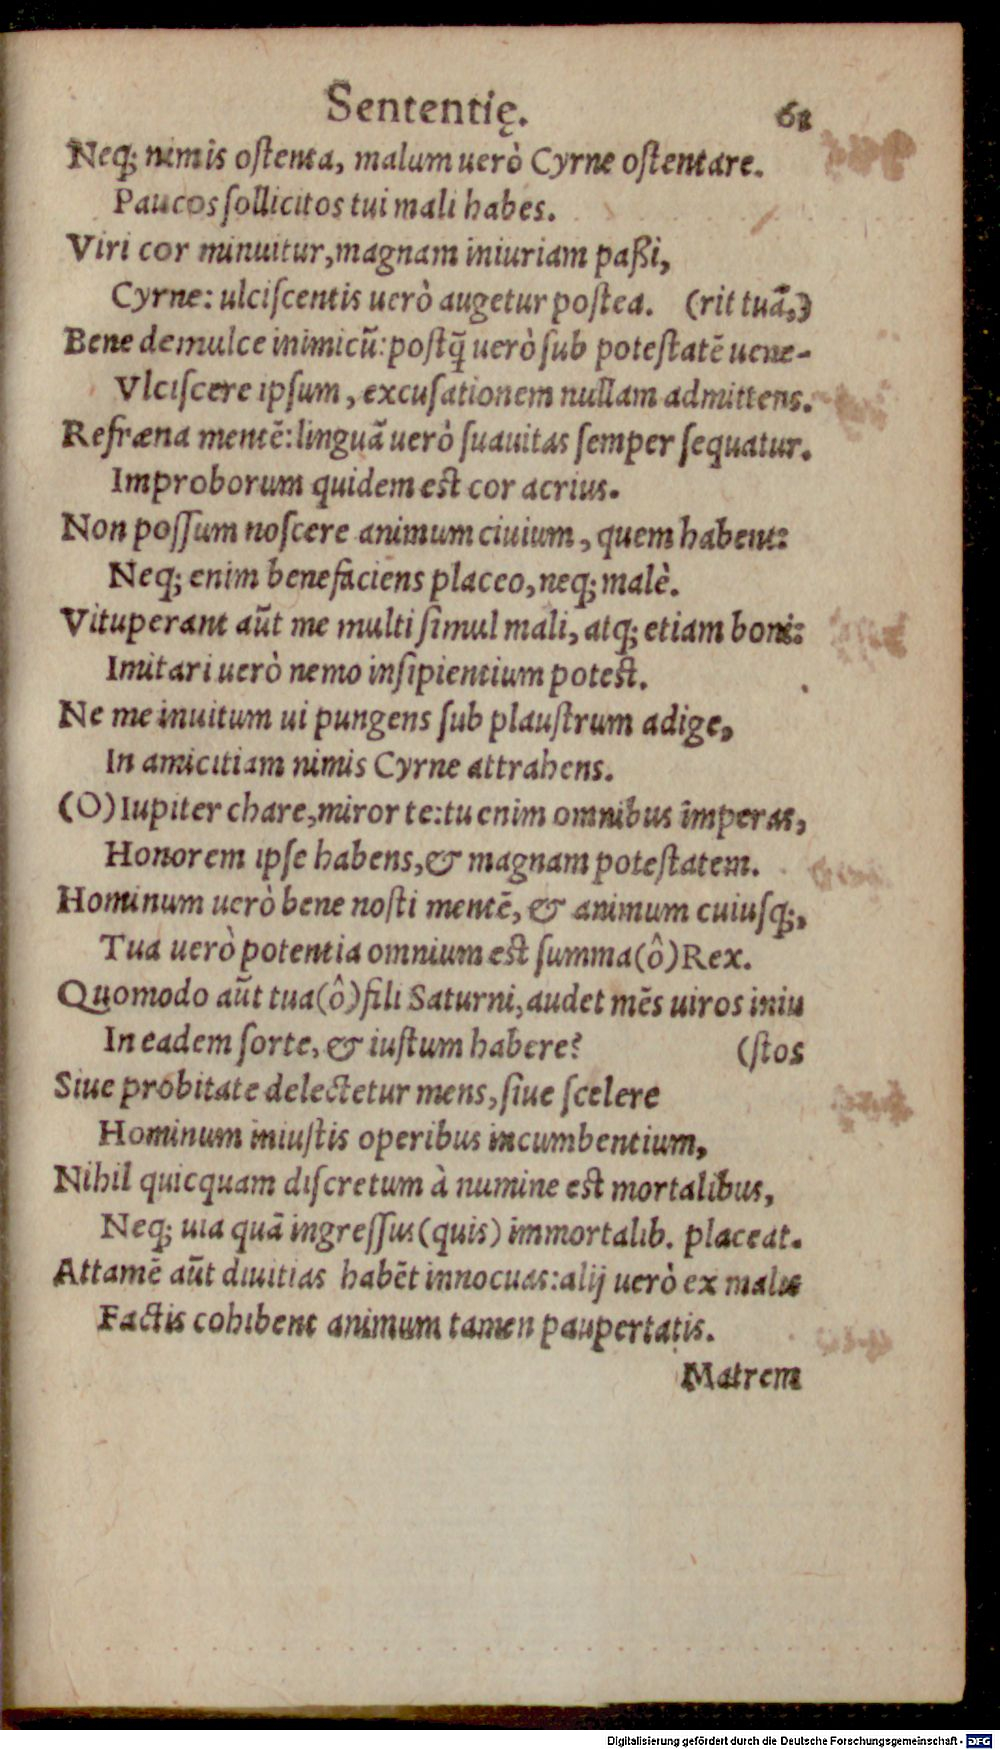 Sententię. 61
Neq; nimis ostenta, malum uerò Cyrne ostentare.
Paucos sollicitos tui mali habes.
Viri cor minuitur, magnam iniuriam paßi,
Cyrne: ulciscentis uerò augetur postea. (rit tuā,)
Bene demulce inimicū: postq̄ uerò sub potestatē uene-
Vlciscere ipsum, excusationem nullam admittens.
Refræna mentē: linguā uerò suauitas semper sequatur.
Improborum quidem est cor acrius.
Non possum noscere animum ciuium, quem habent:
Neq; enim benefaciens placeo, neq; malè.
Vituperant aūt me multi simul mali, atq; etiam boni:
Imitari uerò nemo insipientium potest.
Ne me inuitum ui pungens sub plaustrum adige,
In amicitiam nimis Cyrne attrahens.
(O) Iupiter chare, miror te: tu enim omnibus imperas,
Honorem ipse habens, & magnam potestatem.
Hominum uerò bene nosti mentē, & animum cuiusq;,
Tua uerò potentia omnium est summa (ô) Rex.
Quomodo aūt tua (ô) fili Saturni, audet mēs uiros iniu
In eadem sorte, & iustum habere? (stos
Siue probitate delectetur mens, siue scelere
Hominum iniustis operibus incumbentium,
Nihil quicquam discretum à numine est mortalibus,
Neq; uia quā ingressus (quis) immortalib. placeat.
Attamē aūt diuitias habēt innocuas: alij uerò ex malis
Factis cohibent animum tamen paupertatis.
Matrem
Digitalisierung gefördert durch die Deutsche Forschungsgemeinschaft - DFG